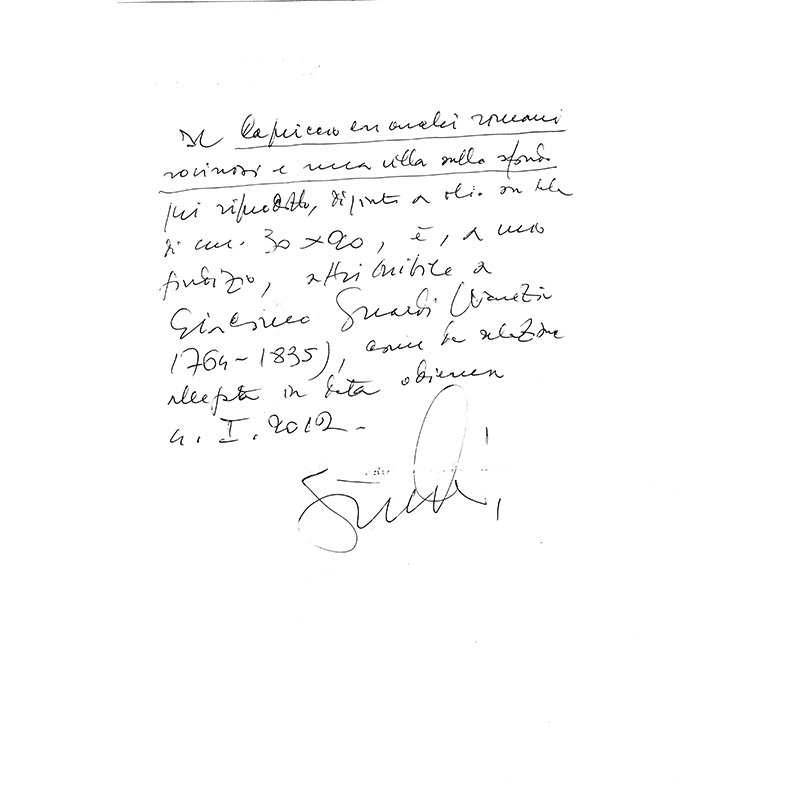 Il Capriccio con archi romani
rovinosi e una villa sullo sfondo
qui riprodotto, dipinto a olio su tela
di cm. 30 x 20, è, a mio
giudizio, attribuibile a
Giacomo Guardi (Venezia
1764-1835), come da relazione
allegata in data odierna
4. I. 2012.